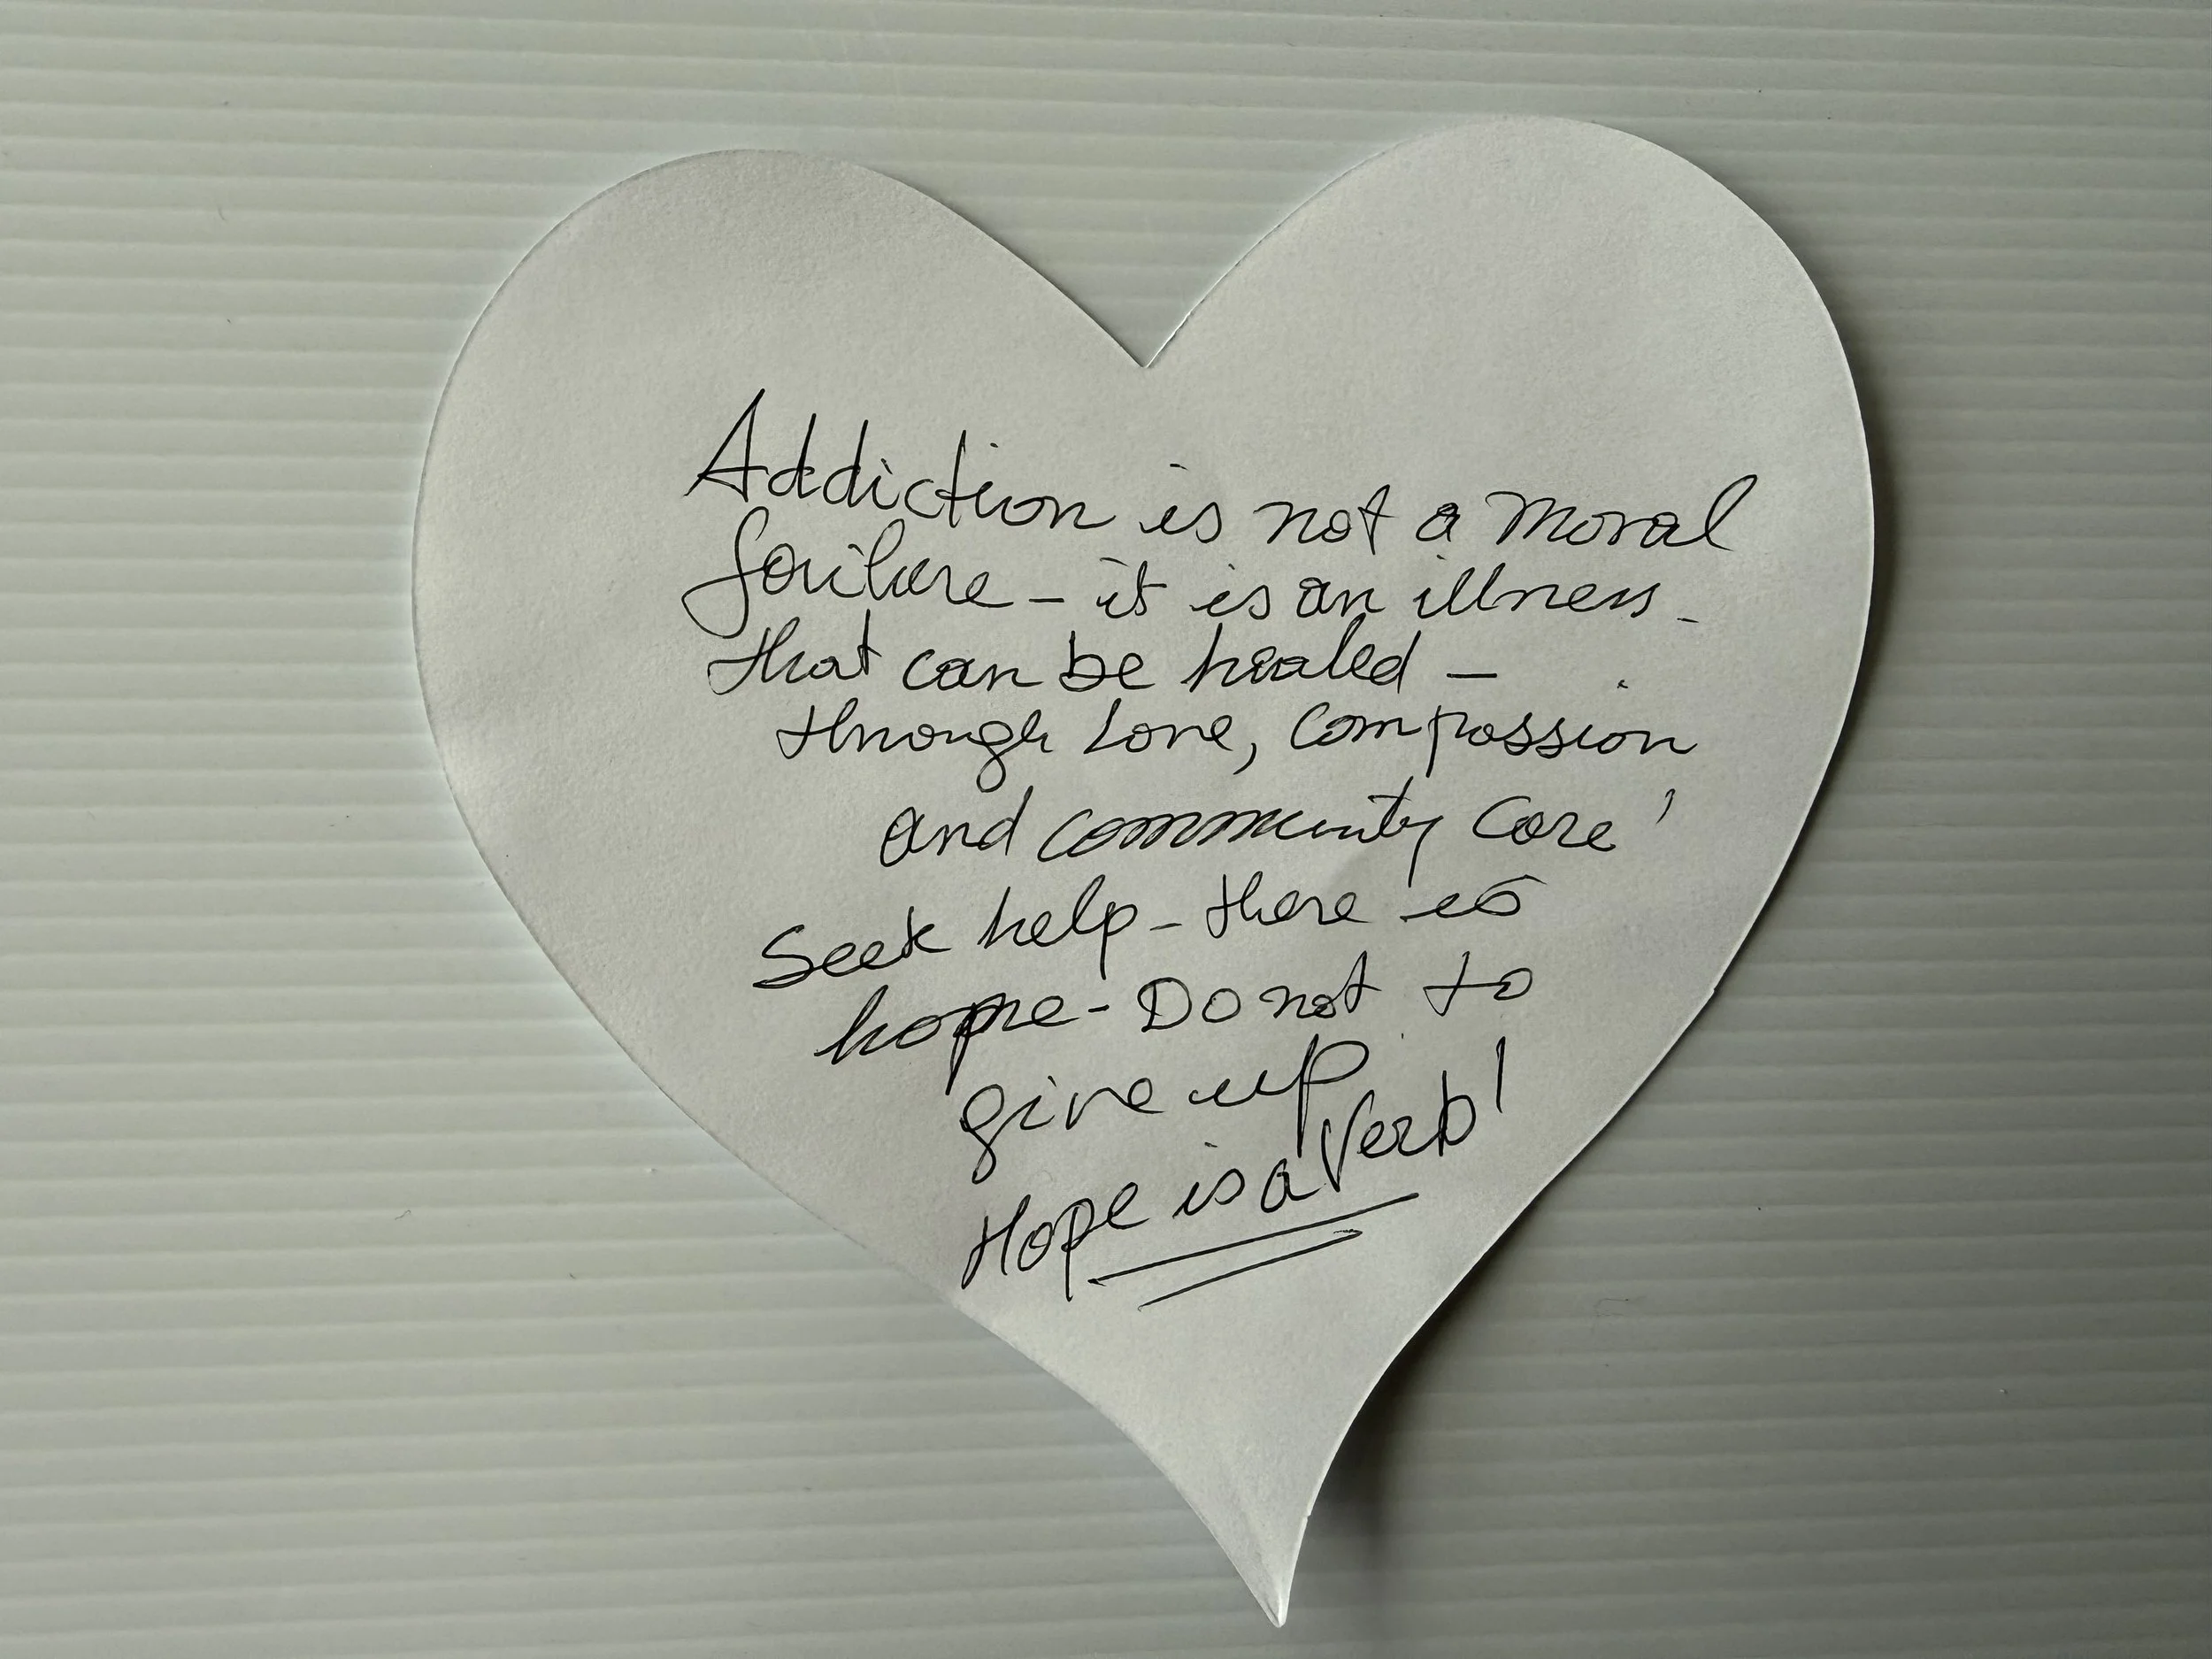 Addiction is not a moral
failure - it is an illness -
that can be healed -
through love, compassion
and community care'
Seek help - there is
hope - Do not to
give up
Hope is a Verb!